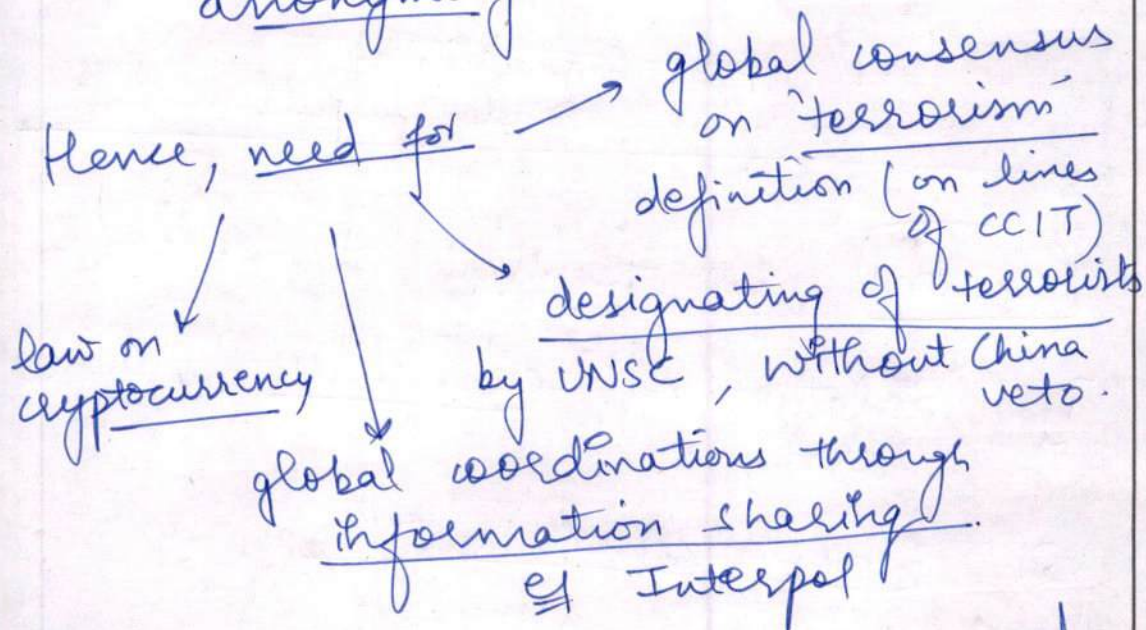 anonymity
global consensus
Hence, need for
on 'terrorism'
definition (on lines
of CCIT)
designating of terrorists
by UNSC, without China
veto.
law on
cryptocurrency
global coordinations through
information sharing.
eg Interpol